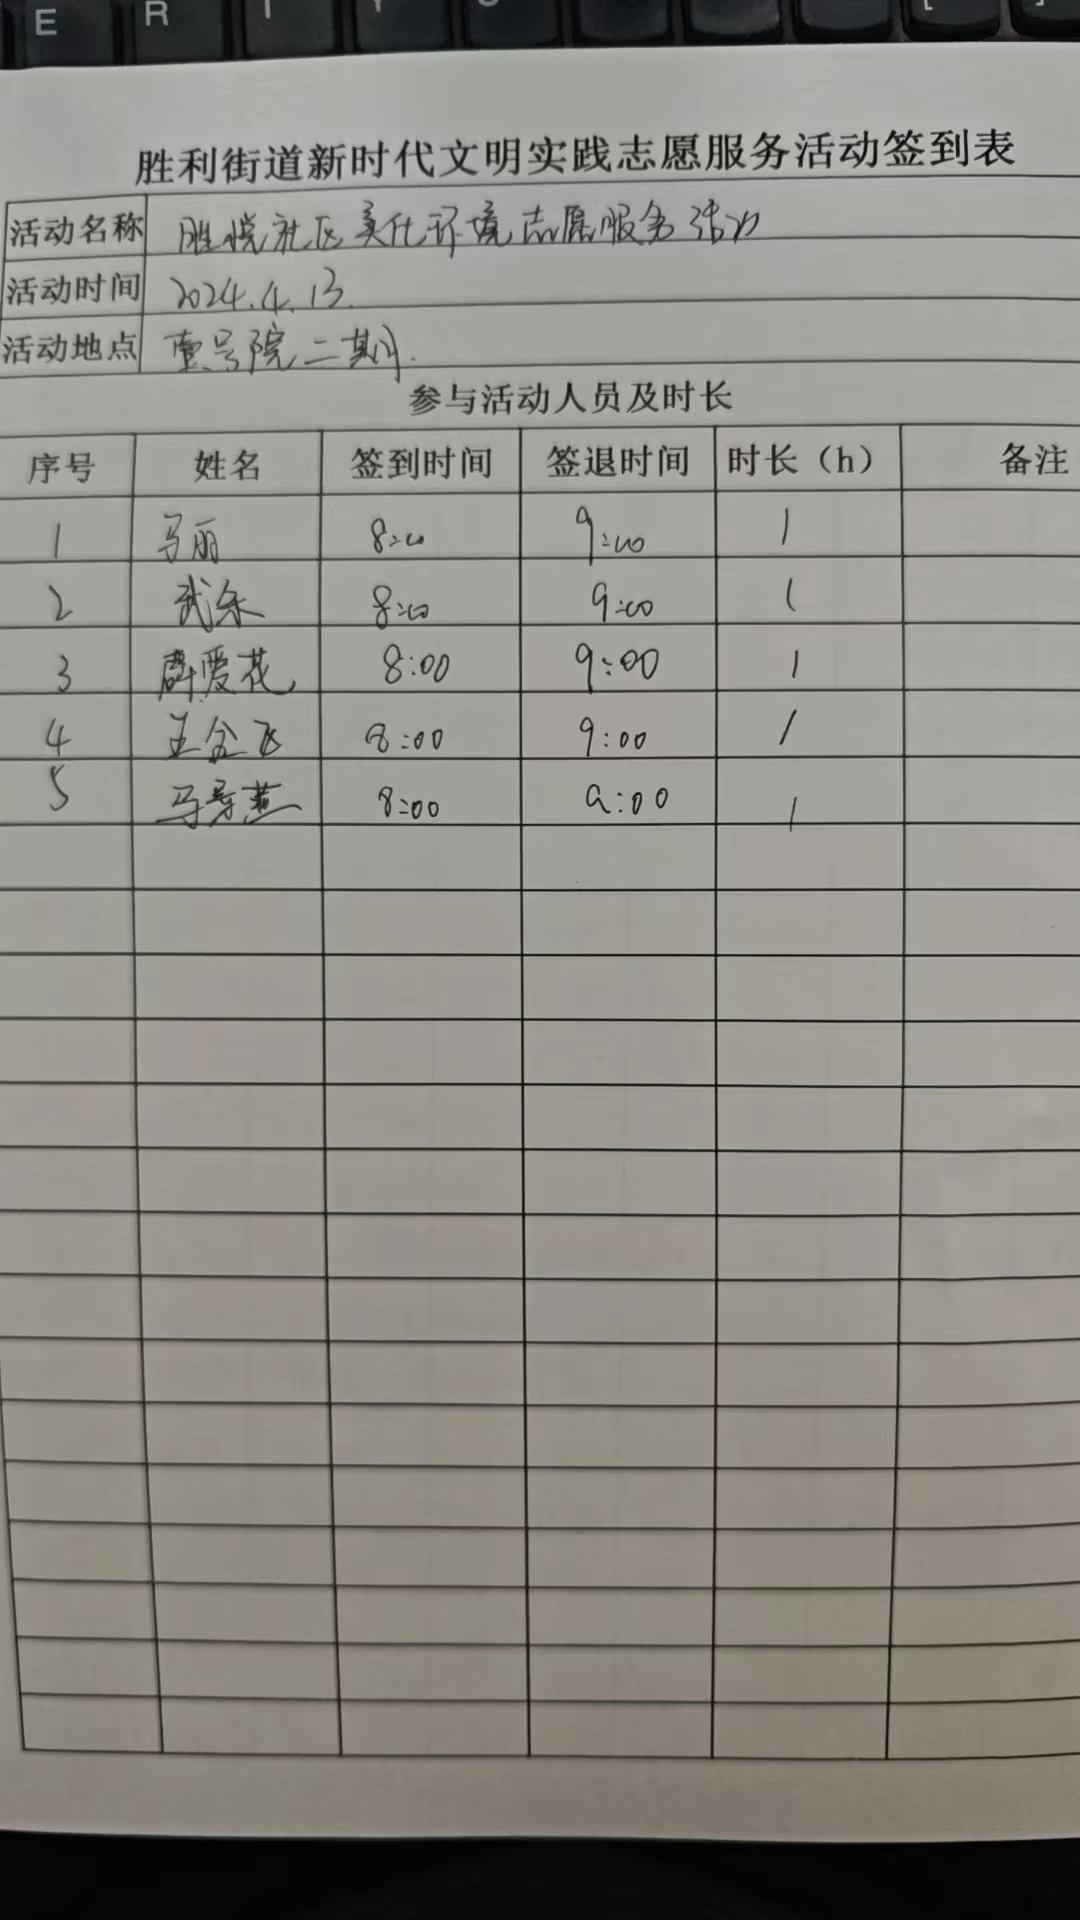 E R T Y [ ]
胜利街道新时代文明实践志愿服务活动签到表
活动名称 胜悦社区美化环境志愿服务活动
活动时间 2024.4.13.
活动地点 壹号院二期.
参与活动人员及时长
序号 姓名 签到时间 签退时间 时长（h） 备注
1 马丽 8:00 9:00 1
2 武 8:00 9:00 1
3 薛爱花 8:00 9:00 1
4 王金飞 8:00 9:00 1
5 马燕 8:00 9:00 1